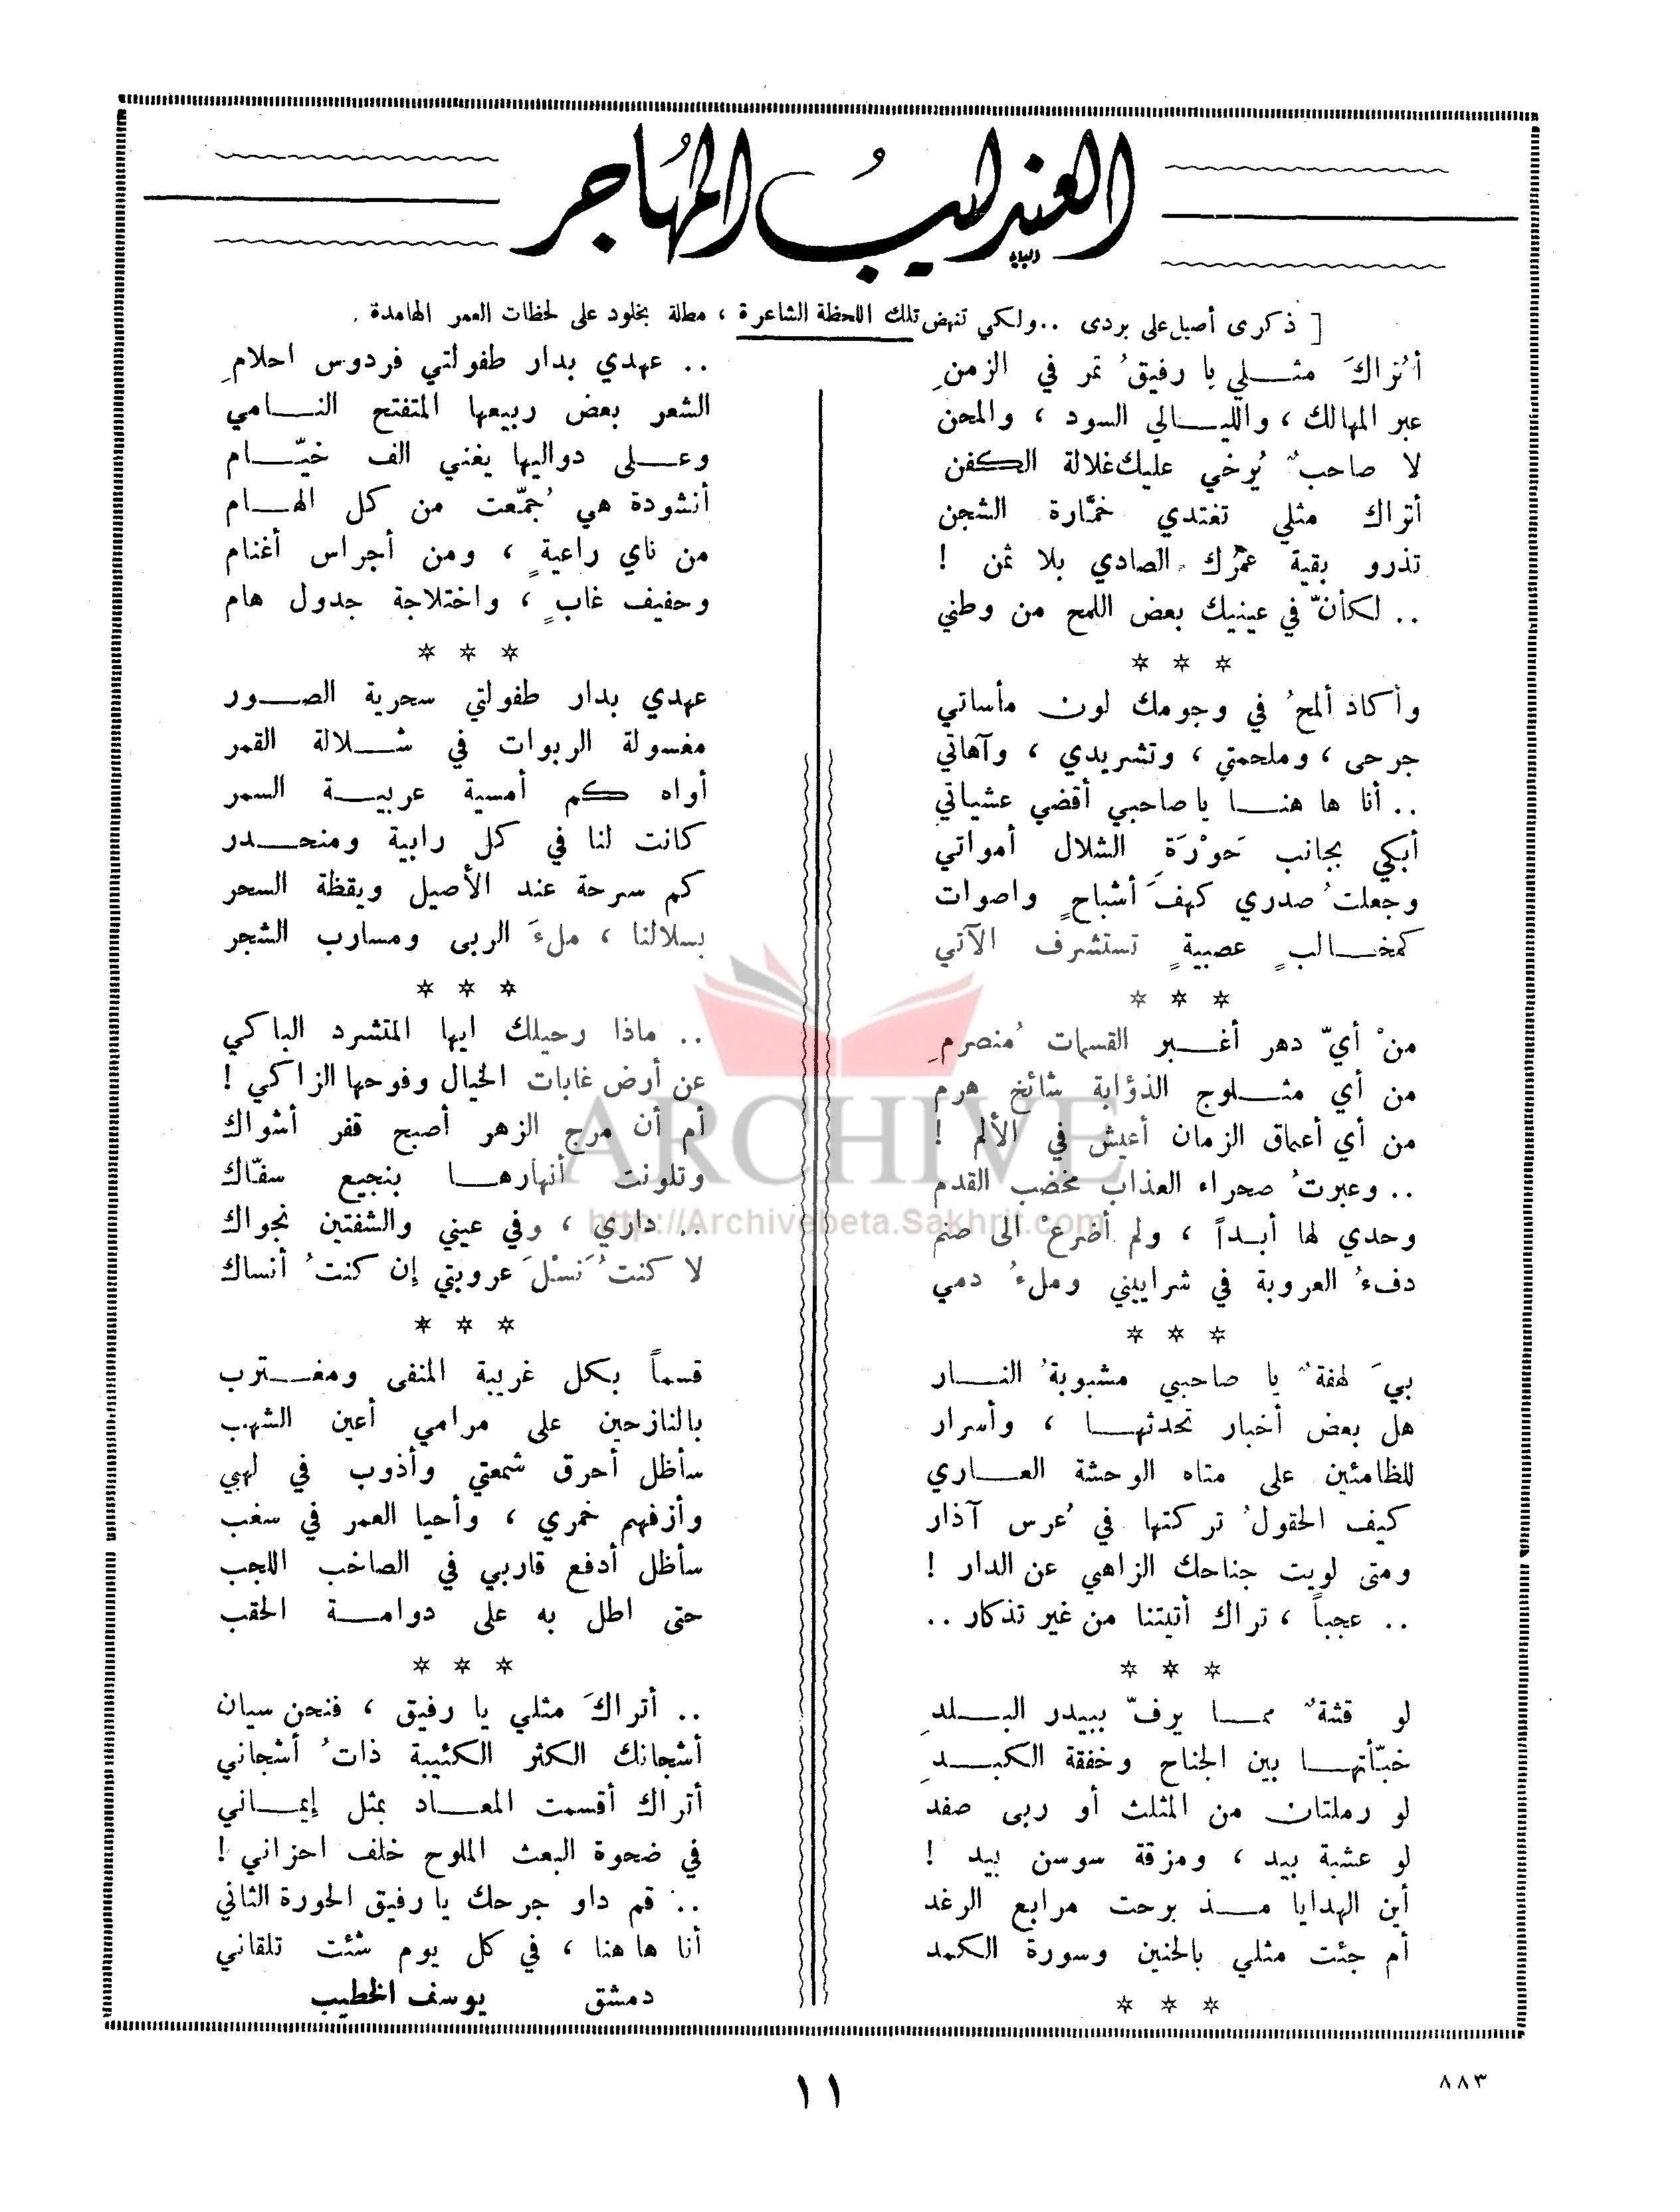 العندليبُ المُهَاجر
[ ذكرى أصيل على بردى .. ولكي تنهض تلك اللحظة الشاعرة ، مطلة بخلود على لحظات العمر الهامدة .
أتُراكَ مثلي يا رفيقُ تمر في الزمنِ
عبر المهالك ، والليالي السود ، والمحن
لا صاحبٌ يُرخي عليك غلالة الكفن
أتراك مثلي تغتدي خمَّارة الشجن
تذرو بقية عمُرك الصادي بلا ثمن !
.. لكأنّ في عينيك بعض اللمح من وطني
* * *
وأكاد ألمحُ في وجومك لون مأساتي
جرحى ، وملحمتي ، وتشريدي ، وآهاتي
.. أنا ها هنا يا صاحبي أقضي عشياتي
أبكي بجانب حَوْرَةِ الشلال أمواتي
وجعلتُ صدري كهفَ أشباحٍ واصوات
كمخالبٍ عصبيةٍ تستشرف الآتي
* * *
منْ أيّ دهر أغبر القسمات مُنصرمِ
من أي مثلوج الذؤابة شائخ هرم
من أي أعماق الزمان أعيش في الألم !
.. وعبرتُ صحراء العذاب مخضب القدم
وحدي لها أبداً ، ولم أضرعْ الى صنم
دفءُ العروبة في شراييني وملءُ دمي
* * *
بيَ لهفةٌ يا صاحبي مشبوبةُ النار
هل بعض أخبار تحدثها ، وأسرار
للظامئين على متاه الوحشة العاري
كيف الحقولُ تركتها في عُرس آذار
ومتى لويت جناحك الزاهي عن الدار !
.. عجباً ، تراك أتيتنا من غير تذكار ..
* * *
لو قشةٌ مما يرفّ ببيدر البلدِ
خبّأتها بين الجناح وخفقة الكبدِ
لو رملتان من المثلث أو ربى صفد
لو عشبة بيد ، ومزقة سوسن بيد !
أين الهدايا مذ برحت مرابع الرغد
أم جئت مثلي بالحنين وسورة الكمد
* * *
.. عهدي بدار طفولتي فردوس احلامِ
الشعر بعض ربيعها المتفتح النامي
وعلى دواليها يغني الف خيّام
أنشودة هي جُمّعت من كل الهام
من ناي راعيةٍ ، ومن أجراس أغنام
وحفيف غابٍ ، واختلاجة جدول هام
* * *
عهدي بدار طفولتي سحرية الصور
مغسولة الربوات في شلالة القمر
أواه كم أمسية عربية السمر
كانت لنا في كل رابية ومنحدر
كم سرحة عند الأصيل ويقظة السحر
بسلالنا ، ملءَ الربى ومسارب الشجر
* * *
.. ماذا رحيلك ايها المتشرد الباكي
عن أرض غابات الخيال وفوحها الزاكي !
أم أن مرج الزهر أصبح قفر أشواك
وتلونت أنهارها بنجيع سفّاك
.. داري ، وفي عيني والشفتين نجواك
لا كنتُ نَسْلَ عروبتي إن كنتُ أنساك
* * *
قسماً بكل غريبة المنفى ومغترب
بالنازحين على مرامي أعين الشهب
سأظل أحرق شمعتي وأذوب في لهبي
وأزفهم خمري ، وأحيا العمر في سغب
سأظل أدفع قاربي في الصاخب اللجب
حتى اطل به على دوامة الحقب
* * *
.. أتراكَ مثلي يا رفيق ، فنحن سيان
أشجانك الكثر الكئيبة ذاتُ أشجاني
أتراك أقسمت المعاد بمثل إيماني
في ضحوة البعث الملوح خلف احزاني !
.. قم داو جرحك يا رفيق الحورة الثاني
أنا ها هنا ، في كل يوم شئت تلقاني
دمشق يوسف الخطيب
ARCHIVE
http://Archivebeta.Sakhrit.com
١١
٨٨٣